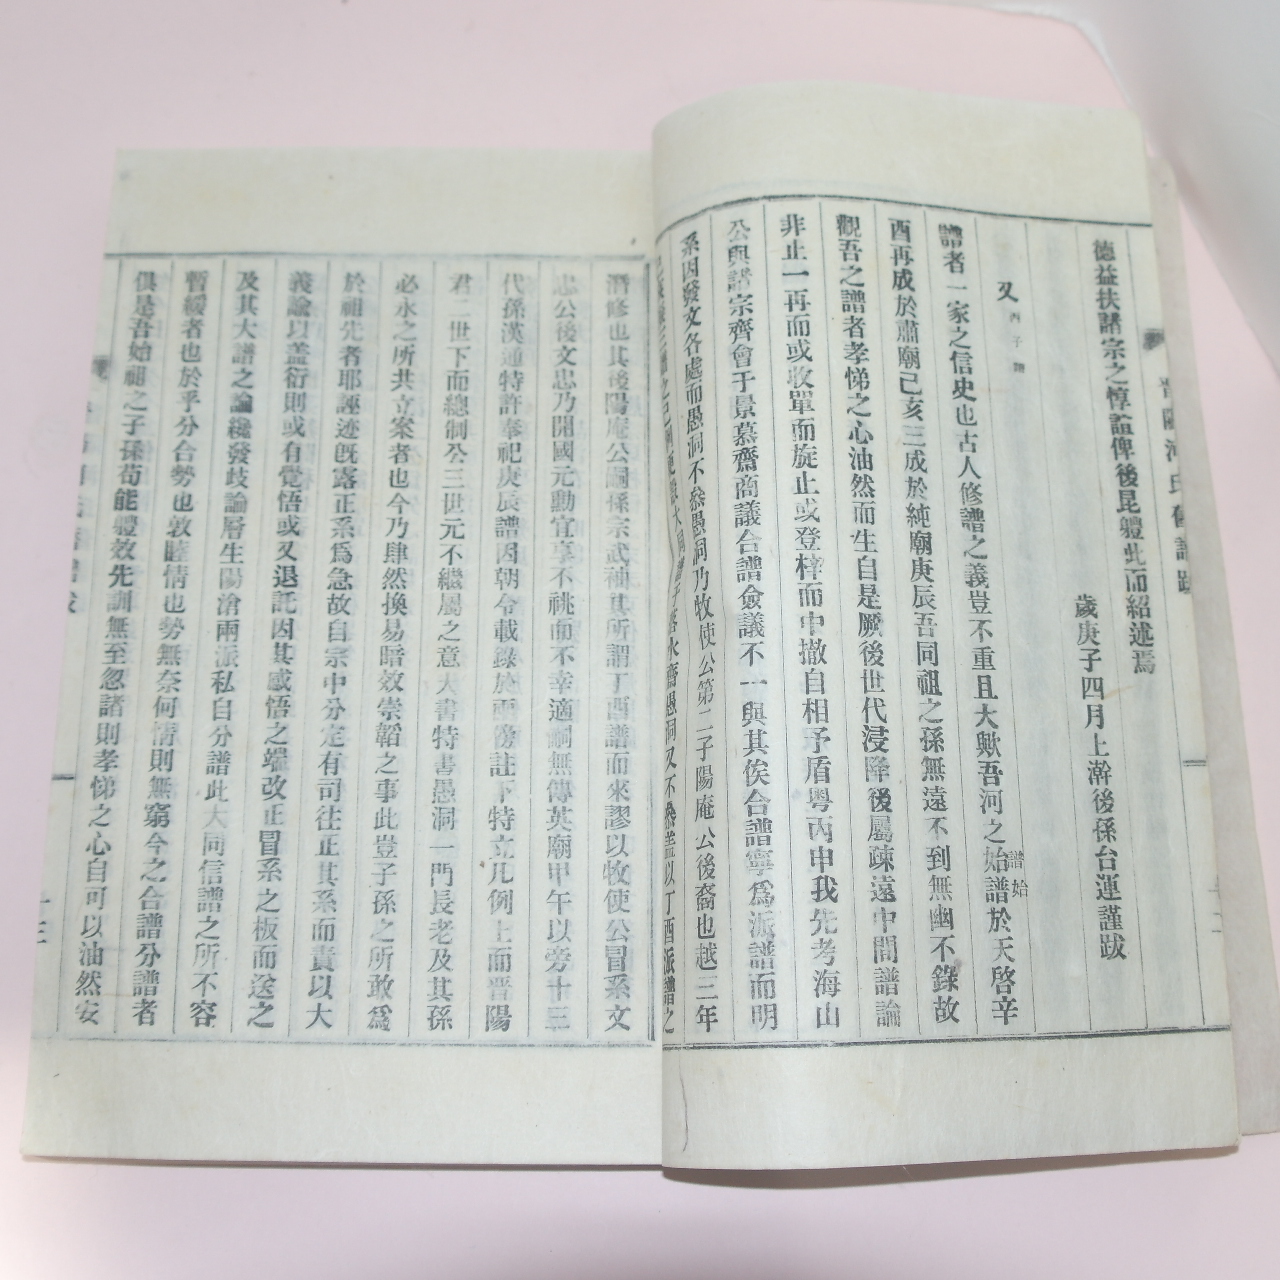 德益扶諸宗之惇誼俾後昆軆此而紹述焉
歲庚子四月上澣後孫台運謹跋
又 丙子譜
譜者一家之信史也古人修譜之義豈不重且大歟吾河之始譜始譜於天啓辛
酉再成於肅廟己亥三成於純廟庚辰吾同祖之孫無遠不到無幽不錄故
觀吾之譜者孝悌之心油然而生自是厥後世代浸降後屬疎遠中間譜論
非止一再而或收單而旋止或登梓而中撤自相矛盾粤丙申我先考海山
公與諸宗齊會于景慕齋商議合譜僉議不一與其俟合譜寧爲派譜而明
系因發文各處而愚洞不叅愚洞乃牧使公第二子陽庵公後裔也越三年
潛修也其後陽庵公嗣孫宗武袖其所謂丁酉譜而來謬以牧使公冒系文
忠公後文忠乃開國元勳宜享不祧而不幸適嗣無傳英廟甲午以旁十三
代孫漢通特許奉祀庚辰譜因朝令載錄於兩傍註下特立凡例上而晋陽
君二世下而總制公三世元不繼屬之意大書特書愚洞一門長老及其孫
必永之所共立案者也今乃肆然換易暗效崇韜之事此豈子孫之所敢爲
於祖先者耶誣迹旣露正系爲急故自宗中分定有司往正其系而責以大
義諭以盖衍則或有覺悟或又退託因其感悟之端改正冒系之板而送之
及其大譜之論纔發歧論層生陽滄兩派私自分譜此大同信譜之所不容
暫緩者也於乎分合勢也敦睦情也勢無奈何情則無窮今之合譜分譜者
俱是吾始祖之子孫苟能軆效先訓無至忽諸則孝悌之心自可以油然安
十三